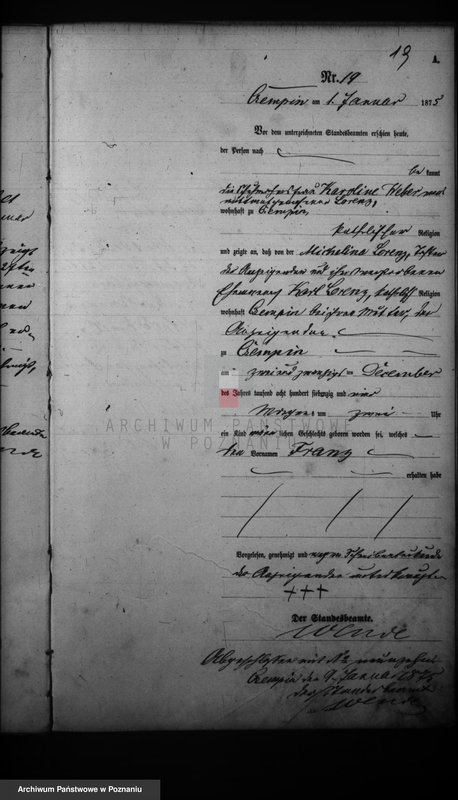 19
A.
Nr. 19
Czempin am 1. Januar 1875
Vor dem unterzeichneten Standesbeamten erschien heute,
der Person nach
be kannt
die Karoline Weber
Lorenz,
wohnhaft zu Czempin,
katholischer Religion
und zeigte an, daß von der Michalina Lorenz, Tochter
der Anzeigenden und ihrem verstorbenen
Ehemann Karl Lorenz, kathol. Religion
wohnhaft Czempin bei ihrer Mutter, der
Anzeigenden
zu Czempin
am zwei und zwanzigsten December
des Jahres tausend acht hundert siebenzig und vier
Morgens um zwei Uhr
ein Kind männ lichen Geschlechts geboren worden sei, welches
den Vornamen Franz
erhalten habe
Vorgelesen, genehmigt und wegen
der Anzeigenden
+++
Der Standesbeamte.
Wende
Abgeschlossen mit No neunzehn
Czempin den 9. Januar 1875
der Standesbeamte
Wende
ARCHIWUM PAŃSTWOWE
W POZNANIU
Archiwum Państwowe w Poznaniu